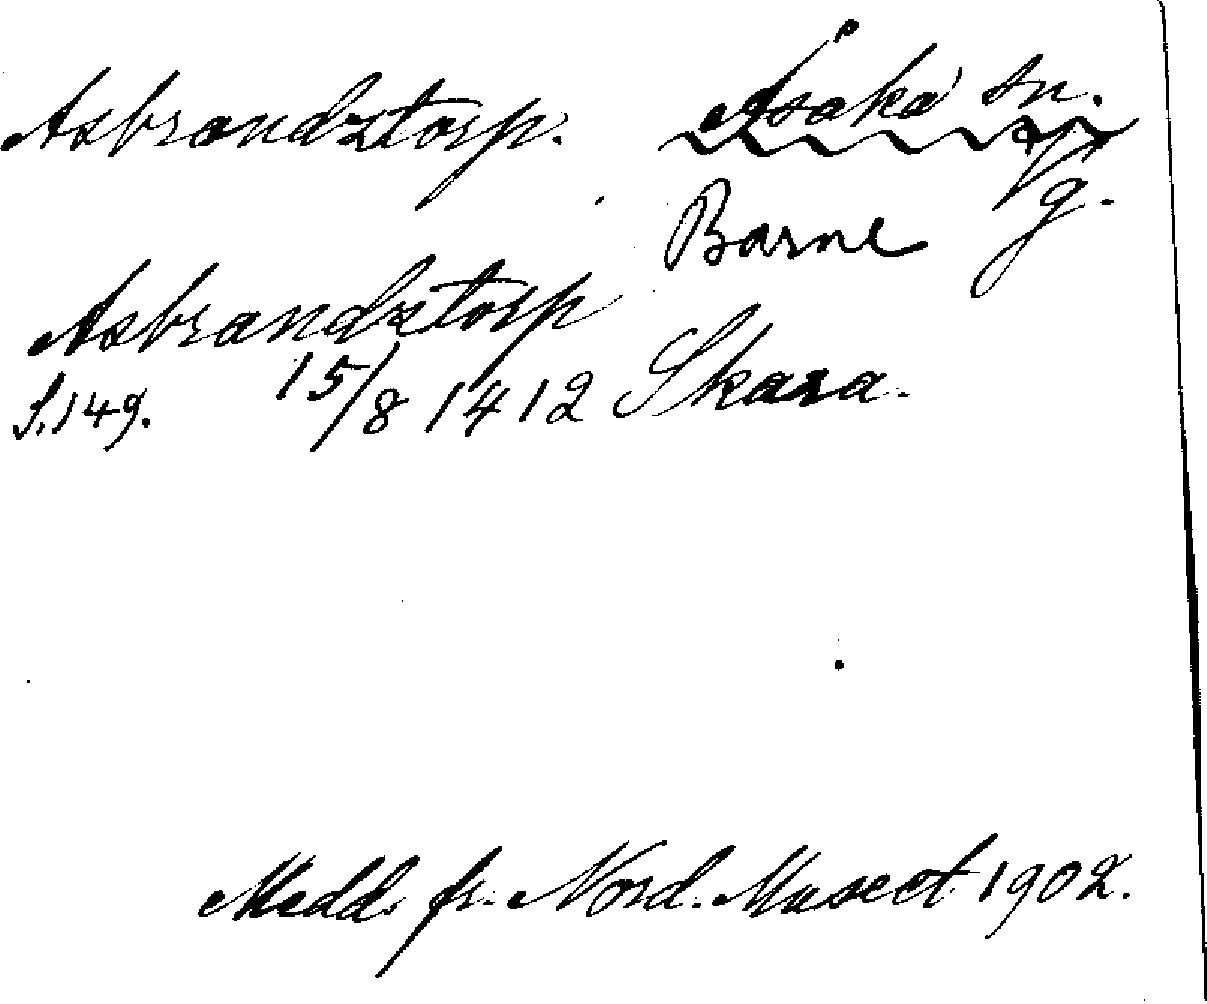 Asbrandztorp. Åsaka sn.
Vg.
Barne
Asbrandztorp
S. 149. 15/8 1412 Skara.
Medd. fr. Nord. Museet 1902.